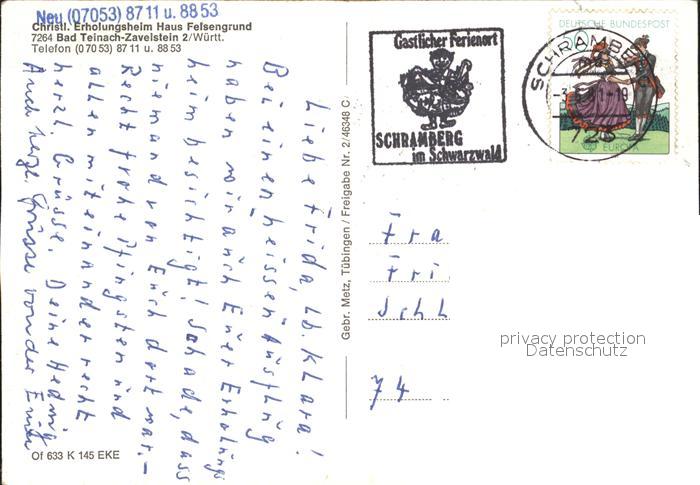 Neu (07053) 87 11 u. 88 53
Christl. Erholungsheim Haus Felsengrund
7264 Bad Teinach-Zavelstein 2/Württ.
Telefon (0 70 53) 87 11 u. 88 53
Liebe Frida, lb. Klara!
Bei einen heissen Ausflug
haben wir auch Euer Erholungs
heim besichtigt! Schade, dass
niemand von Euch dort war.–
Recht frohe Pfingsten und
allen miteinander recht
herzl. Grüsse. Deine Hedwig
Auch herzl. Grüsse von der
Of 633 K 145 EKE
Gebr. Metz, Tübingen / Freigabe Nr. 2/46348 C
Gastlicher Ferienort
SCHRAMBERG
im Schwarzwald
SCHRAMBE
DEUTSCHE BUNDESPOST
EUROPA
Fra
Fri
Schl
74
privacy protection
Datenschutz